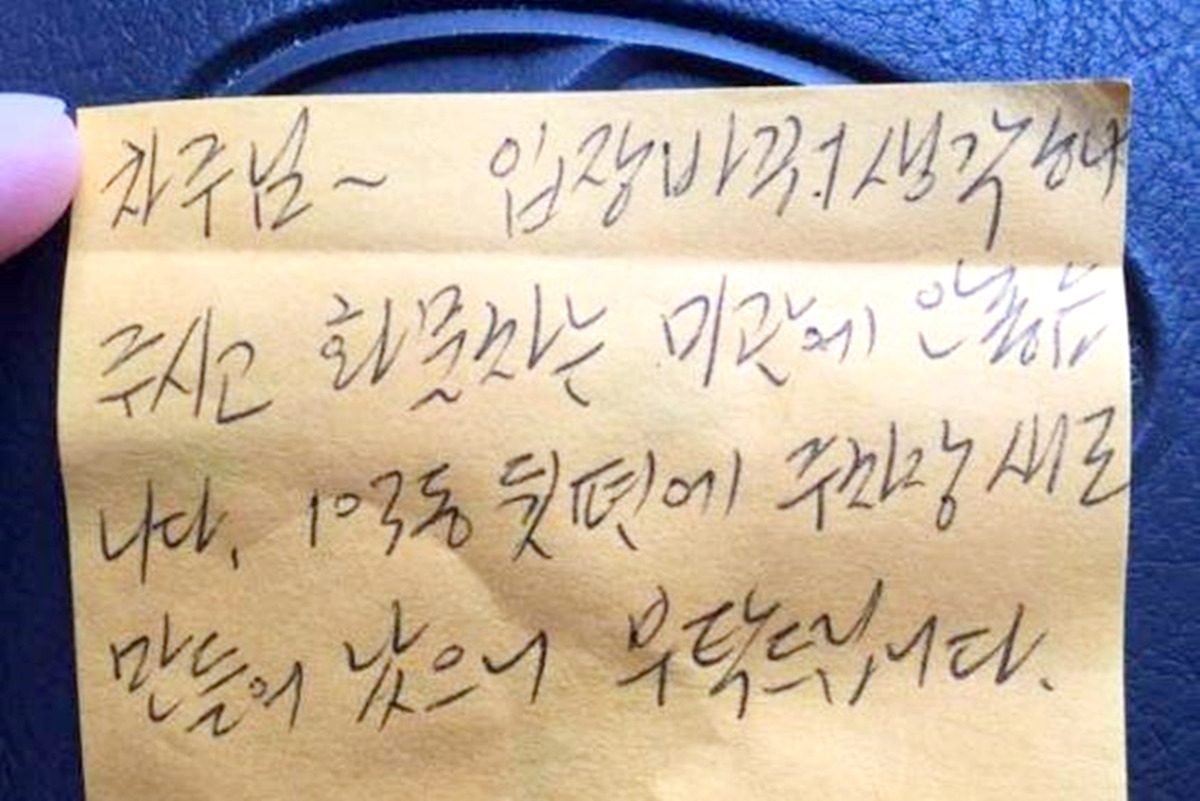 차주님~ 입장바꿔 생각해
주시고 화물차는 이곳에 안좋습
니다. 103동 뒷편에 주차장 새로
만들어 놨으니 부탁드립니다.